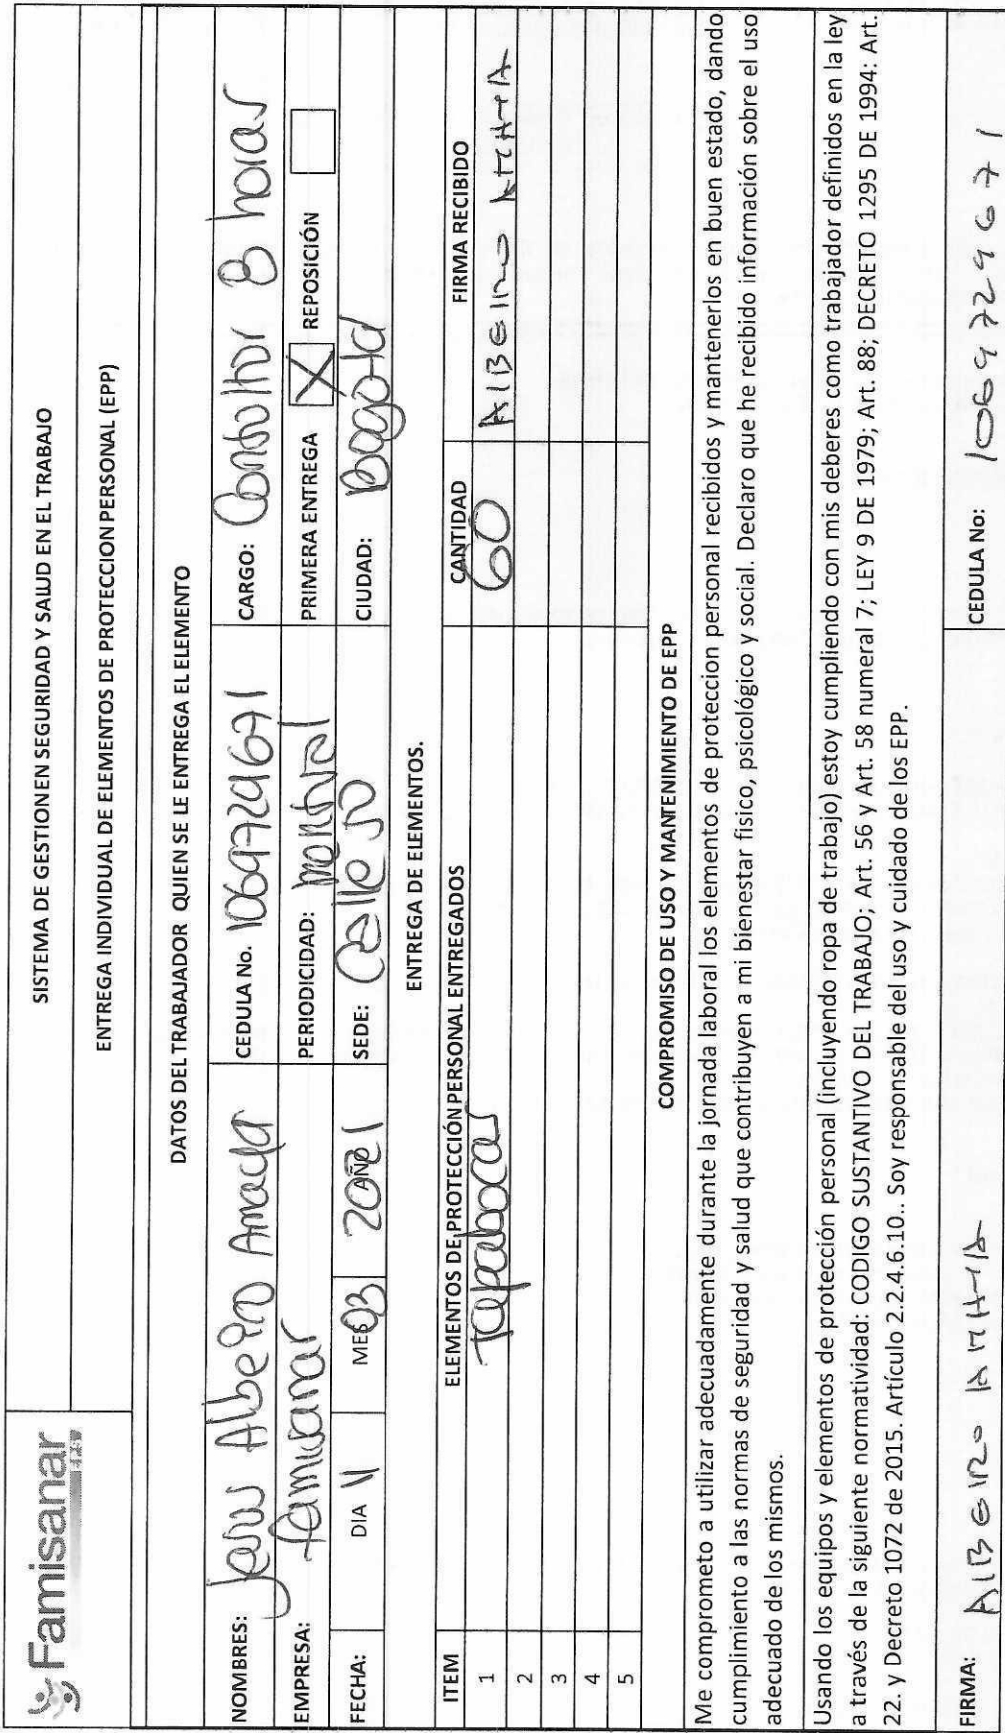 Famisanar
EPS
SISTEMA DE GESTION EN SEGURIDAD Y SALUD EN EL TRABAJO
ENTREGA INDIVIDUAL DE ELEMENTOS DE PROTECCION PERSONAL (EPP)
DATOS DEL TRABAJADOR QUIEN SE LE ENTREGA EL ELEMENTO
NOMBRES: Albeiro Amaya CEDULA No. 1069729671 CARGO: 8 horas
EMPRESA: famisanar PERIODICIDAD: mensual PRIMERA ENTREGA X REPOSICIÓN
FECHA: DIA 11 MES 03 AÑO 2021 SEDE: Calle 50 CIUDAD: Bogotá
ENTREGA DE ELEMENTOS.
ITEM ELEMENTOS DE PROTECCIÓN PERSONAL ENTREGADOS CANTIDAD FIRMA RECIBIDO
1 Tapabocas 60 AlBEIRO AMAYA
2
3
4
5
COMPROMISO DE USO Y MANTENIMIENTO DE EPP
Me comprometo a utilizar adecuadamente durante la jornada laboral los elementos de proteccion personal recibidos y mantenerlos en buen estado, dando
cumplimiento a las normas de seguridad y salud que contribuyen a mi bienestar fisico, psicológico y social. Declaro que he recibido información sobre el uso
adecuado de los mismos.
Usando los equipos y elementos de protección personal (incluyendo ropa de trabajo) estoy cumpliendo con mis deberes como trabajador definidos en la ley
a través de la siguiente normatividad: CODIGO SUSTANTIVO DEL TRABAJO; Art. 56 y Art. 58 numeral 7; LEY 9 DE 1979; Art. 88; DECRETO 1295 DE 1994: Art.
22. y Decreto 1072 de 2015. Artículo 2.2.4.6.10.. Soy responsable del uso y cuidado de los EPP.
FIRMA: AlBEIRO AMAYA CEDULA No: 1069729671